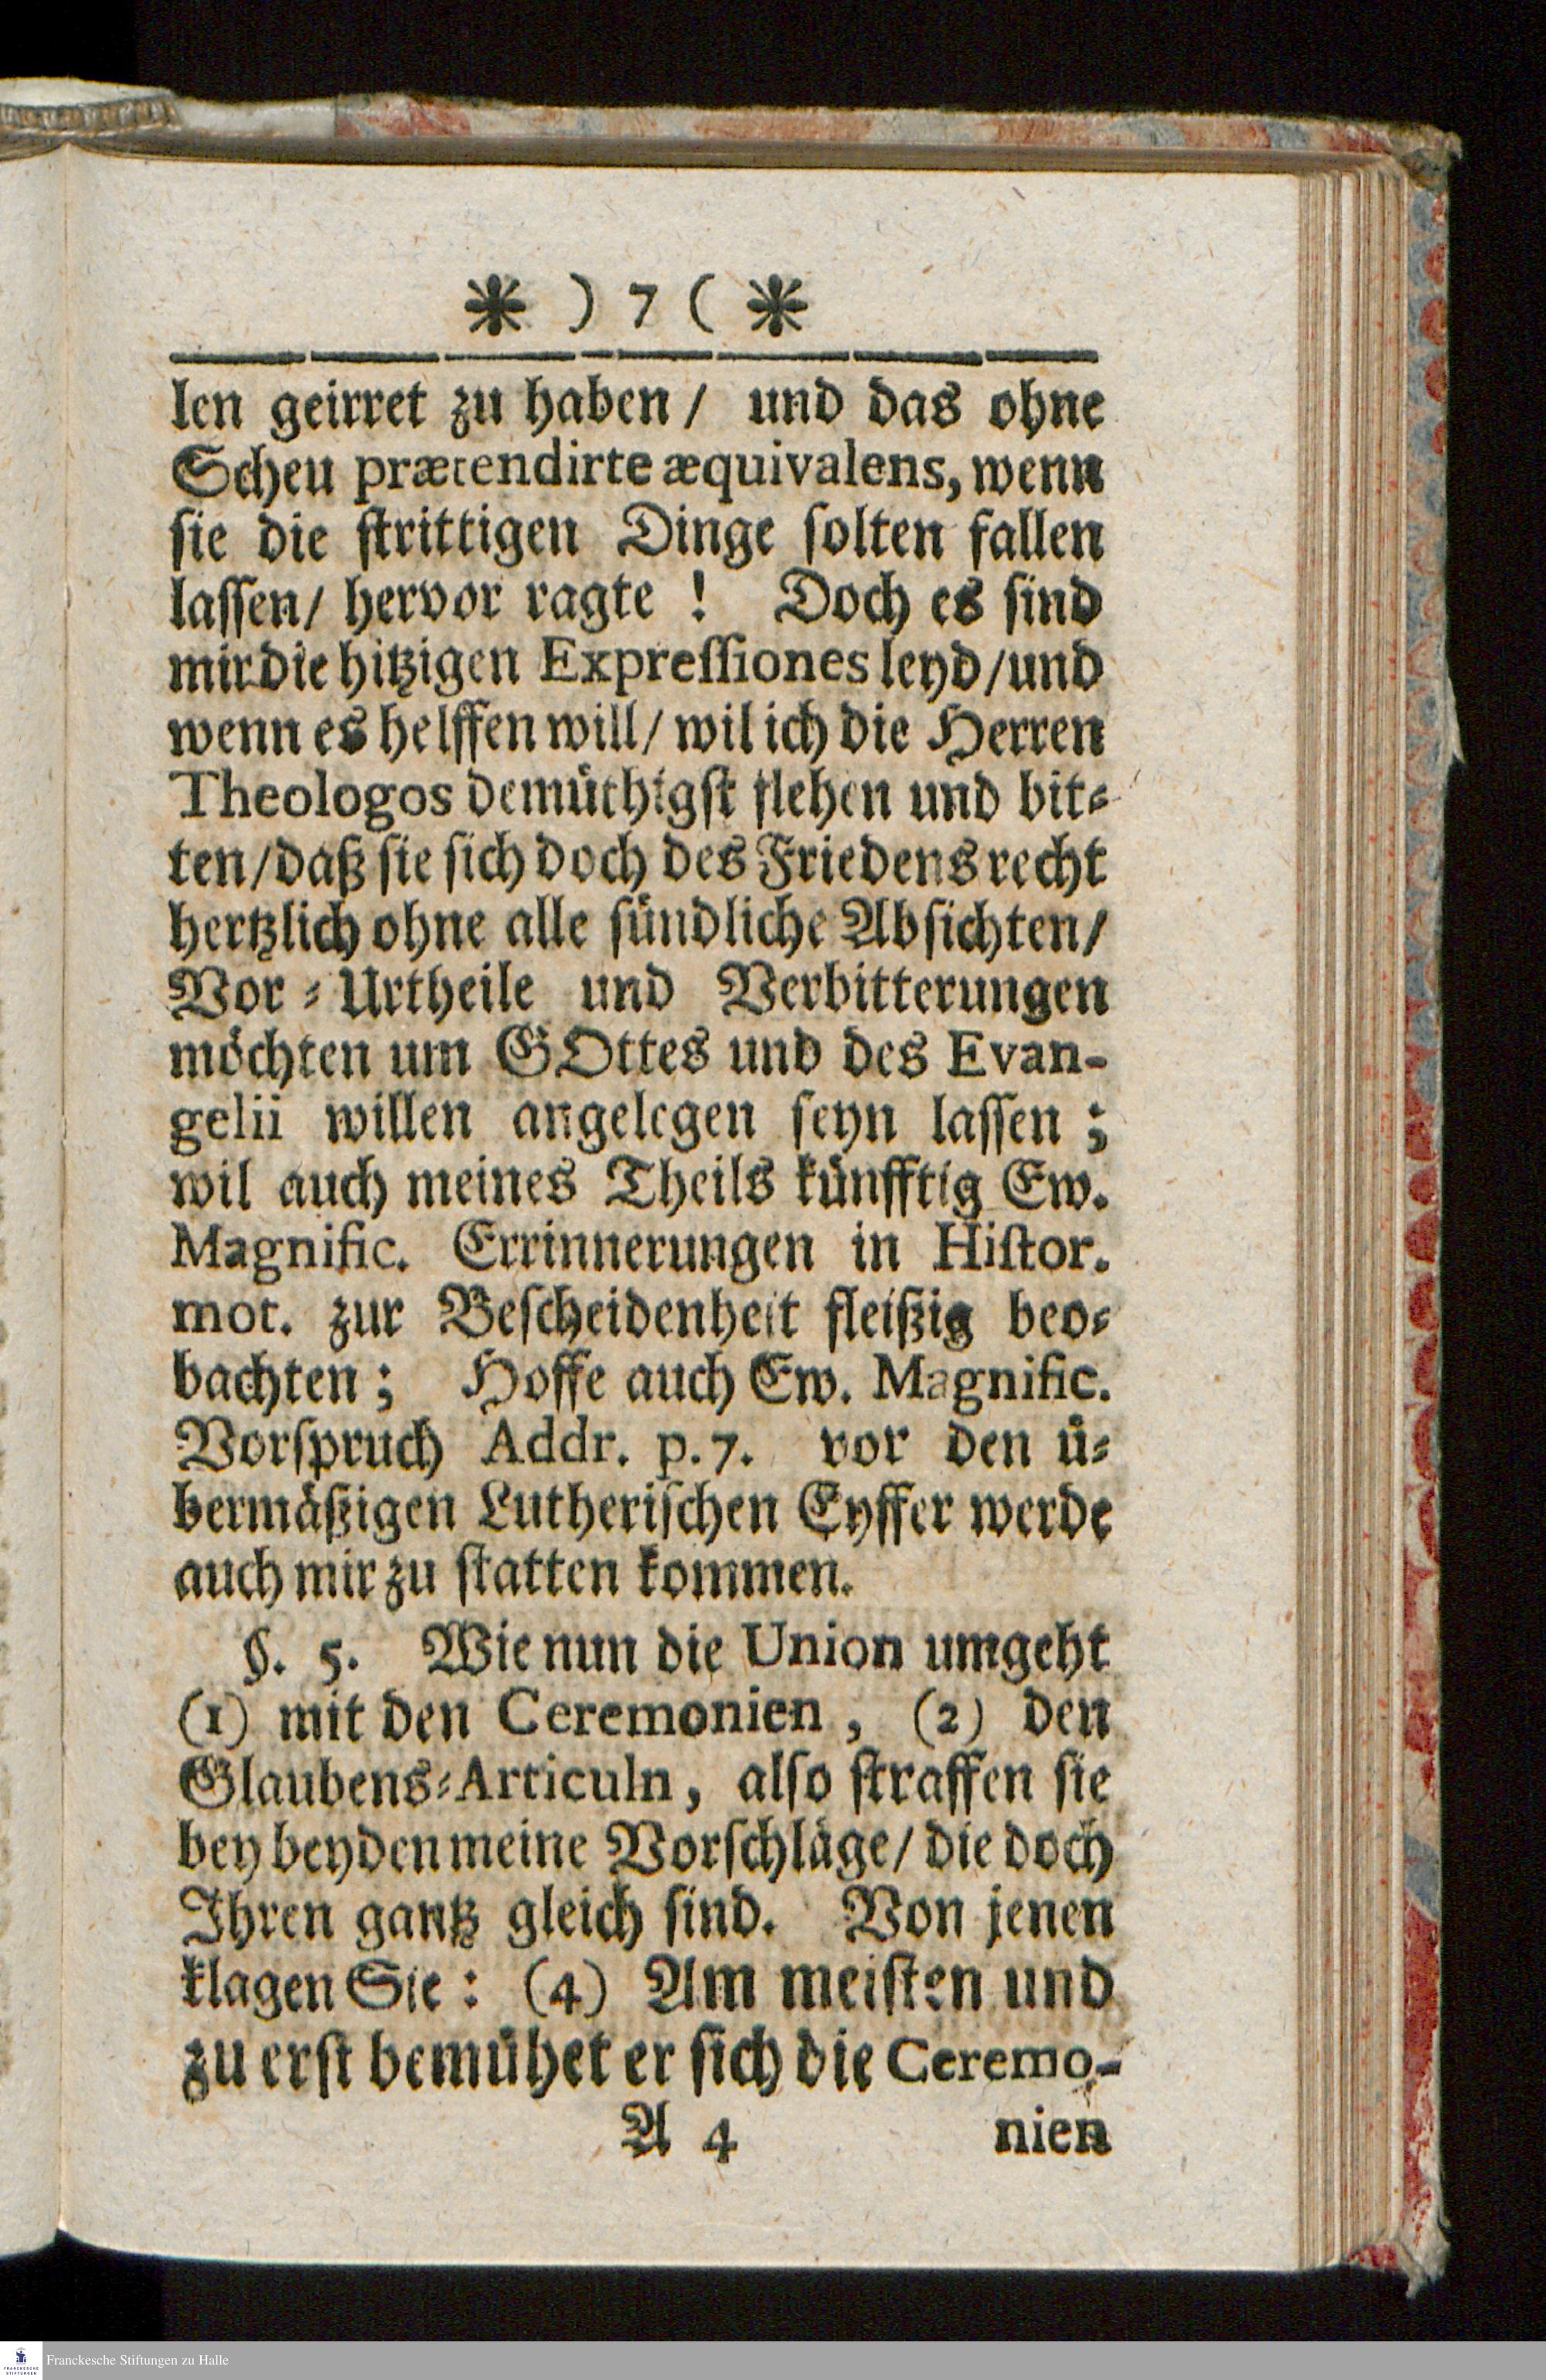 * ) 7 ( *
len geirret zu haben / und das ohne
Scheu prætendirte æquivalens, wenn
sie die strittigen Dinge solten fallen
lassen/ hervor ragte ! Doch es sind
mir die hitzigen Expressiones leyd/und
wenn es helffen will/ wil ich die Herren
Theologos demüthigst flehen und bit-
ten/daß sie sich doch des Friedens recht
hertzlich ohne alle sündliche Absichten/
Vor-Urtheile und Verbitterungen
möchten um GOttes und des Evan-
gelii willen angelegen seyn lassen ;
wil auch meines Theils künfftig Ew.
Magnific. Errinnerungen in Histor.
mot. zur Bescheidenheit fleißig beo-
bachten ; Hoffe auch Ew. Magnific.
Vorspruch Addr. p. 7. vor den ü-
bermäßigen Lutherischen Eyffer werde
auch mir zu statten kommen.
§. 5. Wie nun die Union umgeht
(1) mit den Ceremonien , (2) den
Glaubens-Articuln, also straffen sie
bey beyden meine Vorschläge/ die doch
Ihren gantz gleich sind. Von jenen
klagen Sie : (4) Am meisten und
zu erst bemühet er sich die Ceremo-
A 4 nien
Franckesche Stiftungen zu Halle